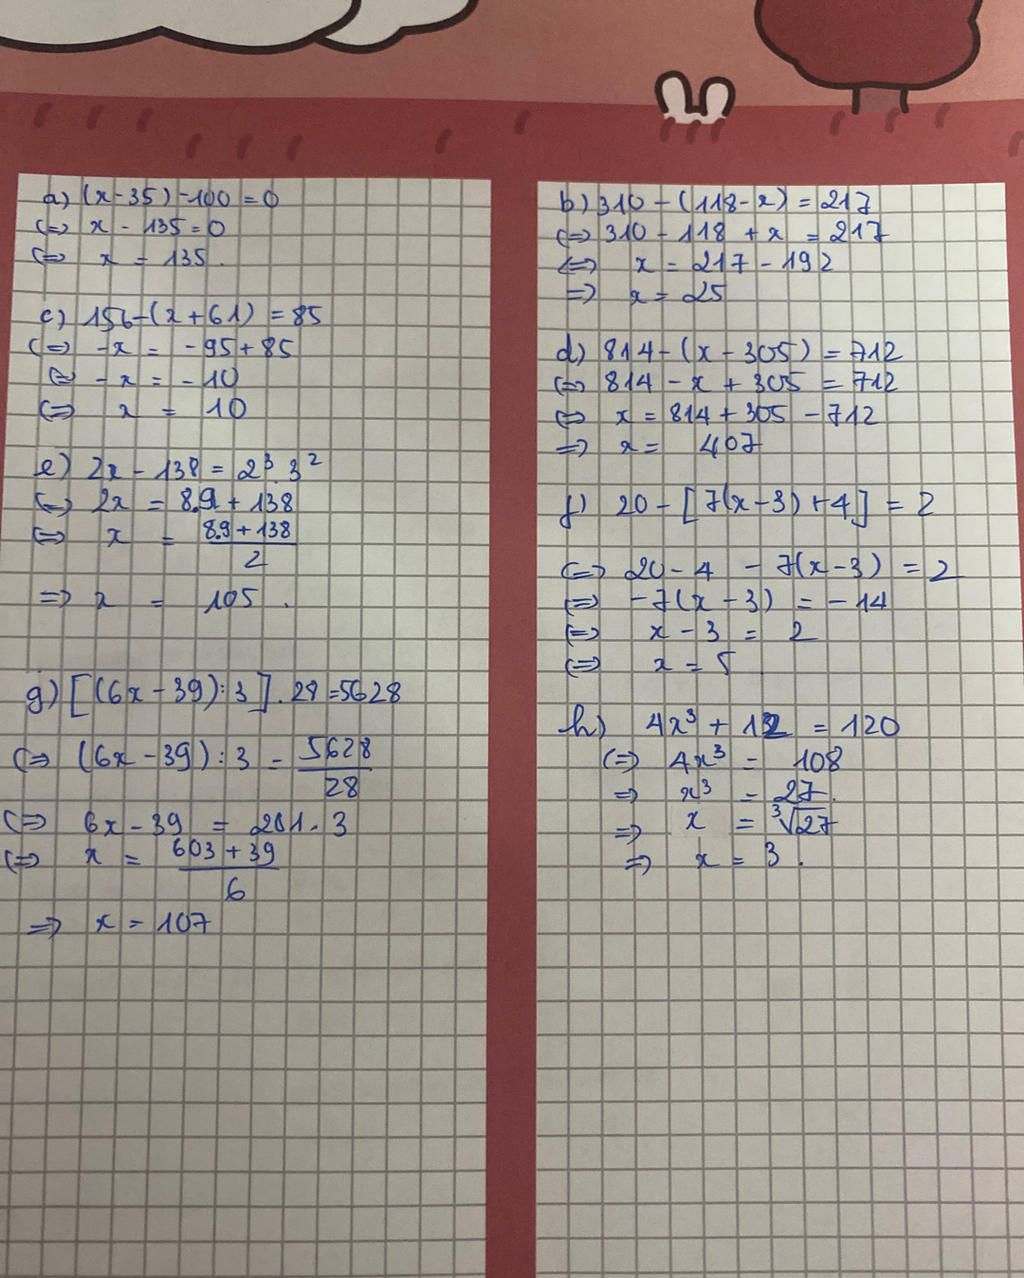 a) (x-35) -100 = 0
(=> x - 135 = 0
(=> x = 135.
c) 156-(x+61) = 85
(=> -x = -95+85
(=> -x = -10
(=> x = 10
e) 2x - 138 = 2³. 3²
(=> 2x = 8.9 + 138
(=> x = \frac{8.9+138}{2}
=> x = 105.
g) [(6x-39):3]. 28 =5628
(=> (6x-39):3 = \frac{5628}{28}
(=> 6x-39 = 201.3
(=> x = \frac{603+39}{6}
=> x = 107
b) 310-(118-x) = 217
(=> 310-118 + x = 217
(=> x = 217-192
=> x = 25
d) 814-(x-305) = 712
(=> 814 - x + 305 = 712
(=> x = 814+305-712
=> x = 407
f) 20 - [7(x-3)+4] = 2
(=> 20-4 - 7(x-3) = 2
(=> -7(x-3) = -14
(=> x-3 = 2
(=> x = 5
h) 4x³ + 12 = 120
(=> 4x³ = 108
=> x³ = 27.
=> x = ³√27
=> x = 3.